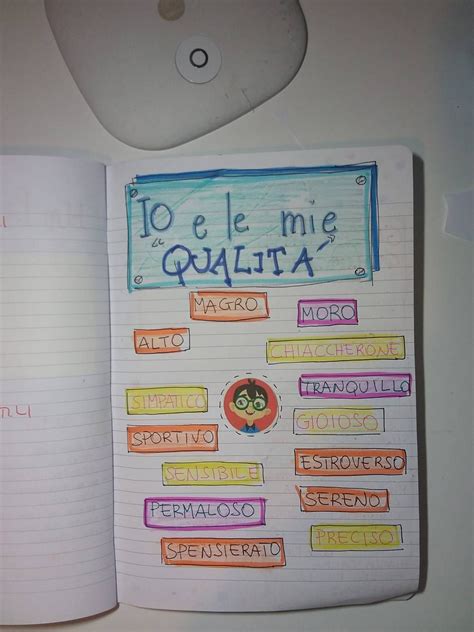 IO e le mie
"QUALITÀ"
MAGRO
MORO
ALTO
CHIACCHERONE
TRANQUILLO
SIMPATICO
GIOIOSO
SPORTIVO
ESTROVERSO
SENSIBILE
SERENO
PERMALOSO
PRECISO
SPENSIERATO